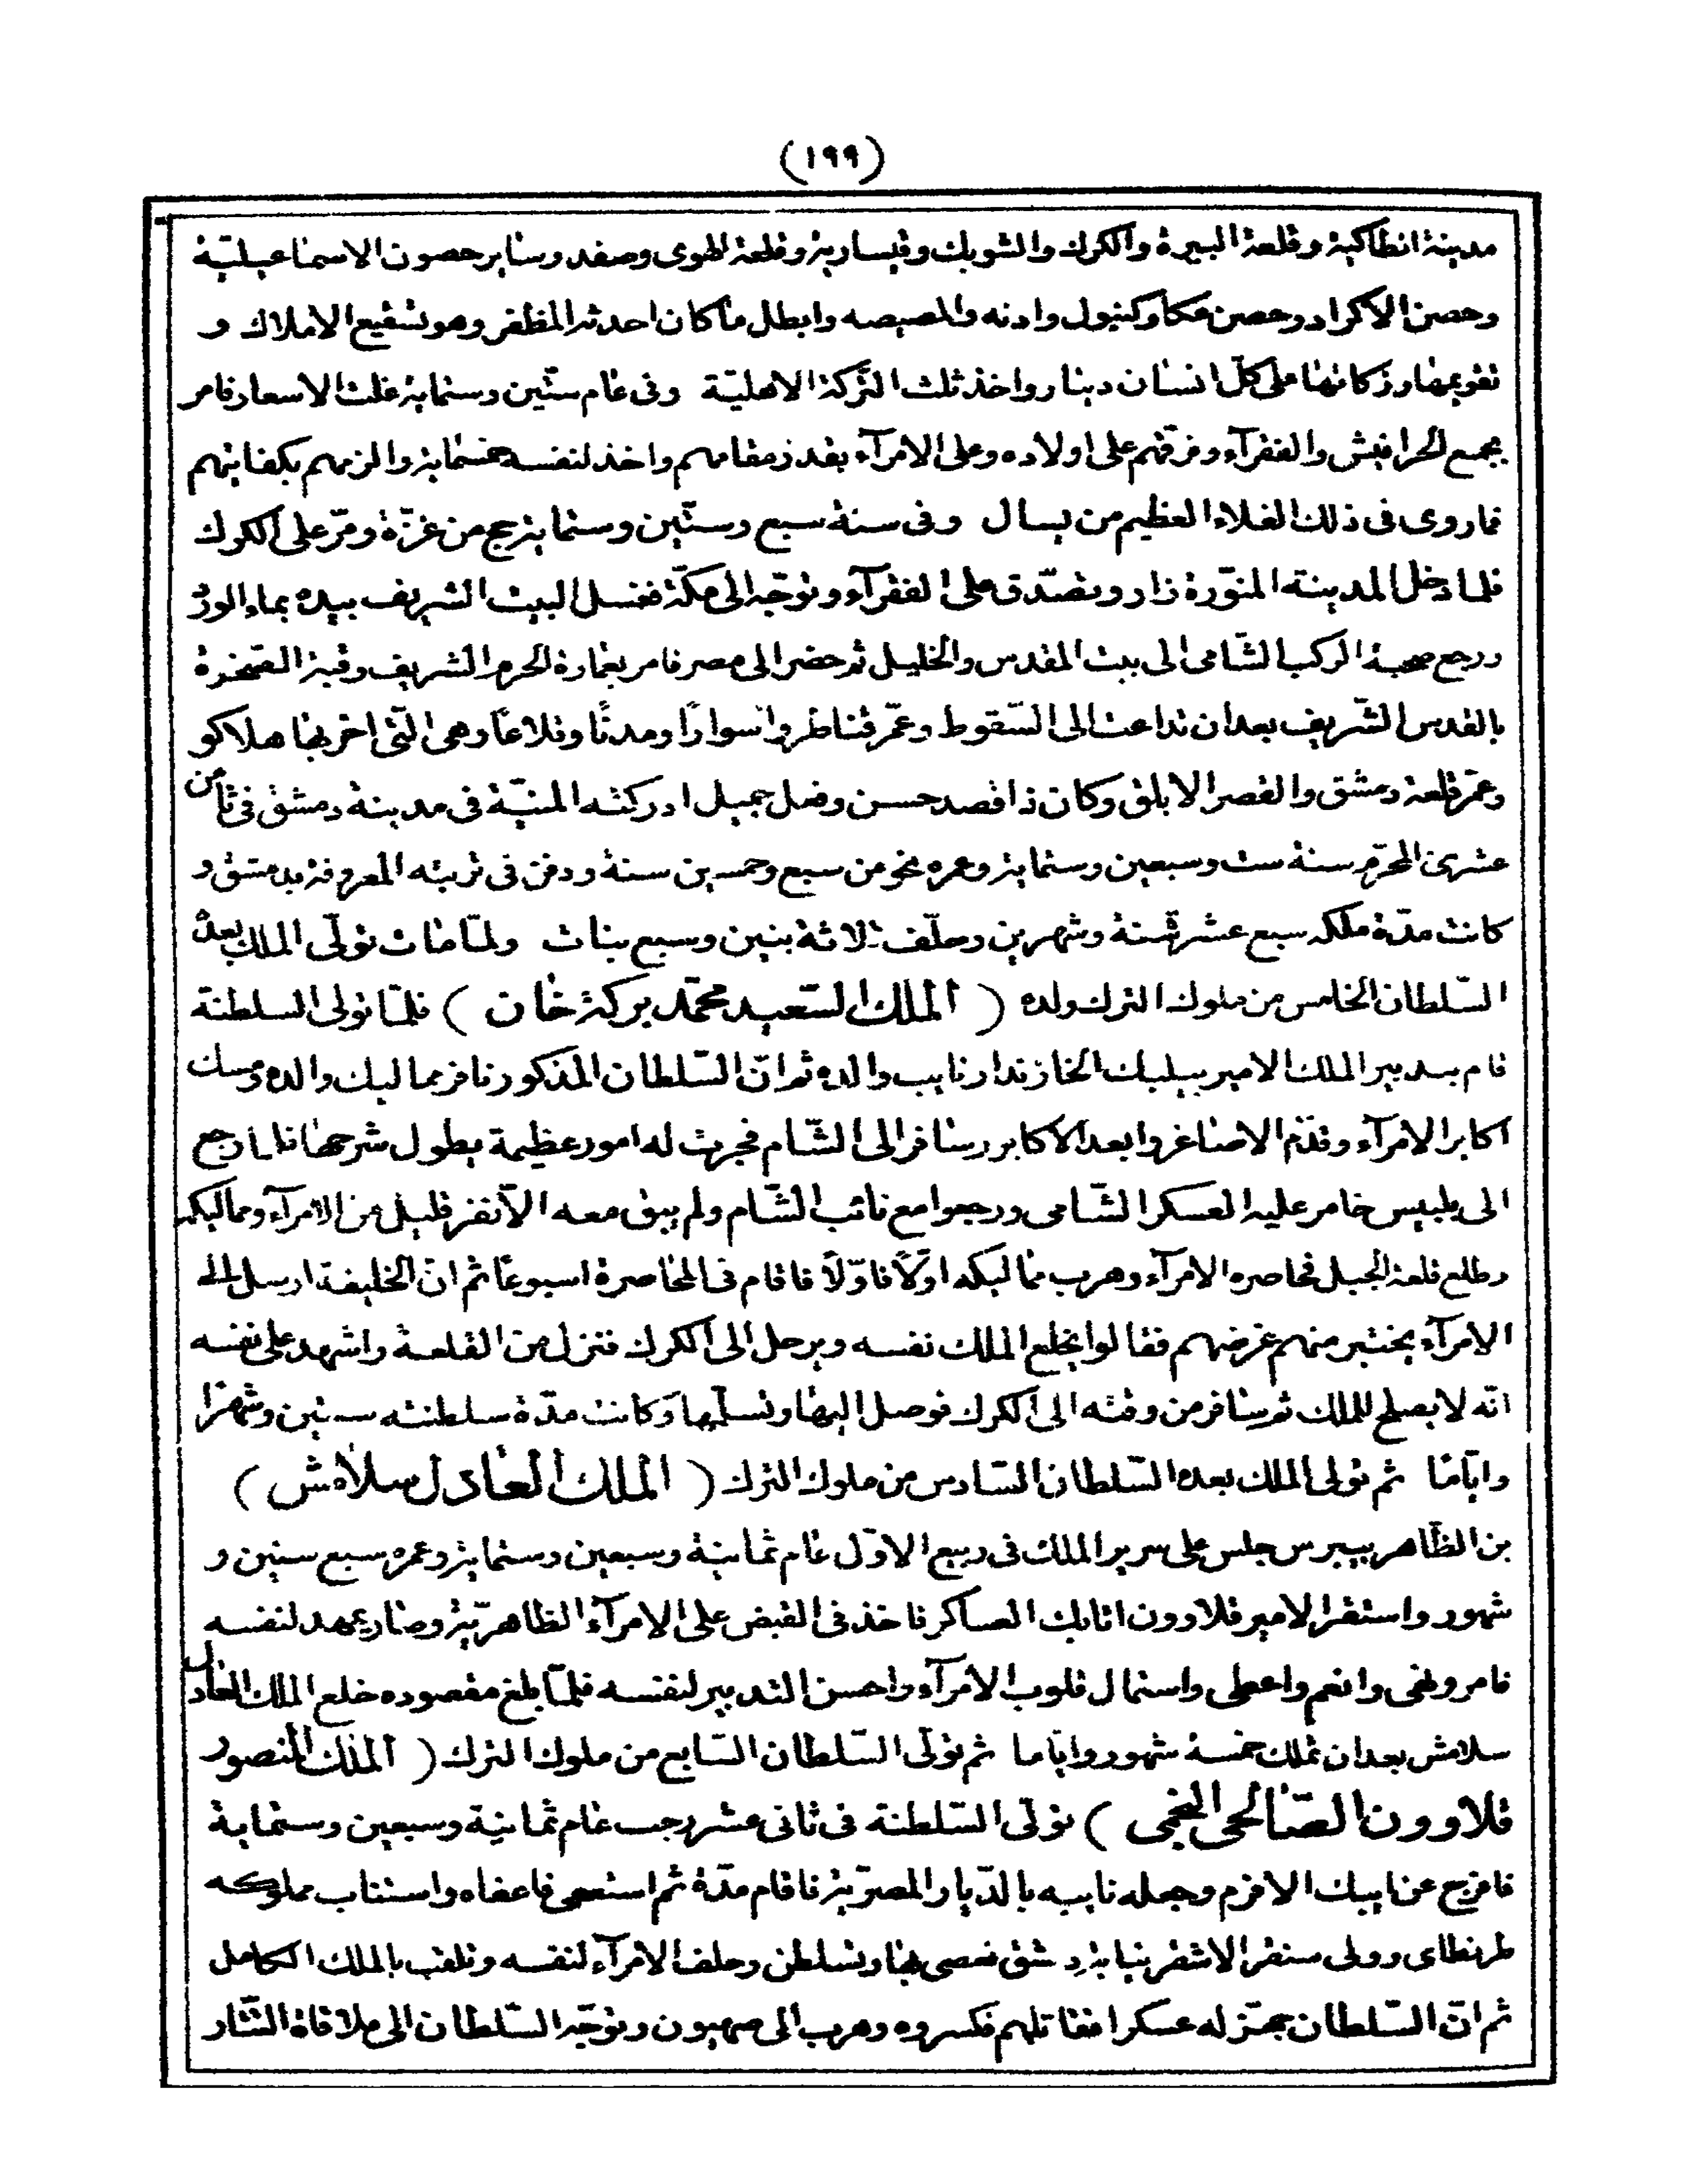 (١٩٩)
مدينة انطاكية وقلعة البيرة والكرك والشوبك وقيسارية وقلعة الهوى وصفد وسائر حصون الاسماعيلية
وحصن الاكراد وحصن عكا وكينول وادنه والمصيصه وابطل ما كان احدثه المظفر وهو تسقيع الاملاك و
تقويمها وزكاتها على كل انسان دينار واخذ ثلث التركة الاهلية وفى عام ستين وستماية غلت الاسعار فامر
بجمع الحرافيش والفقرآء وفرقهم على اولاده وعلى الامرآء بقدر مقامهم واخذ لنفسه خمسماية والزمهم بكفايتهم
فما روى فى ذلك الغلاء العظيم من يسال وفى سنة سبع وستين وستماية حج من غزّة ومرّ على الكرك
فلما دخل المدينة المنوّرة زار وتصدّق على الفقرآء وتوجّه الى مكّة فغسل البيت الشريف بيده بماء الورد
ورجع صحبة الركب الشامى الى بيت المقدس والخليل ثم حضر الى مصر فامر بعمارة الحرم الشريف وقبة الصخرة
بالقدس الشريف بعد ان تداعت الى السّقوط وعمّر قناطر واسوارًا ومدنًا وقلاعًا وهى التى اخربها هلاكو
وعمّر قلعة دمشق والقصر الابلق وكان ذا قصد حسن وفعل جميل ادركته المنيّة فى مدينة دمشق فى ثامن
عشرى المحرّم سنة ست وسبعين وستماية وعمره نحو من سبع وخمسين سنة ودفن فى تربته المعروفة بدمشق و
كانت مدّة ملكه سبع عشرة سنة وشهرين وخلّف ثلاثة بنين وسبع بنات ولمّا مات تولّى الملك بعده
السّلطان الخامس من ملوك الترك ولده ( الملك السّعيد محمّد بركة خان ) فلمّا تولى السلطنة
قام بتدبير الملك الامير بيلبك الخازندار نايب والده ثم انّ السّلطان المذكور نافر مماليك والده ومسك
اكابر الامرآء وقدّم الاصاغر وابعد الاكابر وسافر الى الشّام فجرت له امور عظيمة يطول شرحها فلما رجع
الى بلبيس خامر عليه العسكر الشامى ورجعوا مع نائب الشّام ولم يبق معه الّا نفر قليل من الامرآء ومماليكه
وطلع قلعة الجبل فحاصره الامرآء وهرب مماليكه اوّلًا فاوّلًا فاقام فى المحاصرة اسبوعًا ثم انّ الخليفة ارسل الى
الامرآء يختبر منهم غرضهم فقالوا يخلع الملك نفسه ويرحل الى الكرك فنزل من القلعة واشهد على نفسه
انّه لا يصلح للملك ثم سافر من وقته الى الكرك فوصل اليها وتسلّمها وكانت مدّة سلطنته سنتين وشهرًا
وايّامًا ثم تولى الملك بعده السّلطان السّادس من ملوك الترك ( الملك العادل سلامش )
بن الظّاهر بيبرس جلس على سرير الملك فى ربيع الاوّل عام ثمانية وسبعين وستماية وعمره سبع سنين و
شهور واستقر الامير قلاوون اتابك العساكر فاخذ فى القبض على الامرآء الظاهريّة وصار يمهد لنفسه
فامر ونهى وانعم واعطى واستمال قلوب الامرآء واحسن التدبير لنفسه فلمّا بلغ مقصوده خلع الملك العادل
سلامش بعد ان تملك خمسة شهور واياما ثم تولّى السّلطان السّابع من ملوك الترك ( الملك المنصور
قلاوون الصّالحى النجمى ) تولّى السّلطنة فى ثانى عشر رجب عام ثمانية وسبعين وستماية
فافرج عن ايبك الافرم وجعله نايبه بالدّيار المصريّة فاقام مدّة ثم استعفى فاعفاه واستناب مملوكه
طرنطاى وولى سنقر الاشقر نيابة دمشق فعصى بها وتسلطن وحلف الامرآء لنفسه وتلقب بالملك الكامل
ثم انّ السّلطان جهّز له عسكرا فقاتلهم فكسروه وهرب الى صهيون وتوجّه السّلطان الى ملاقاة التّتار